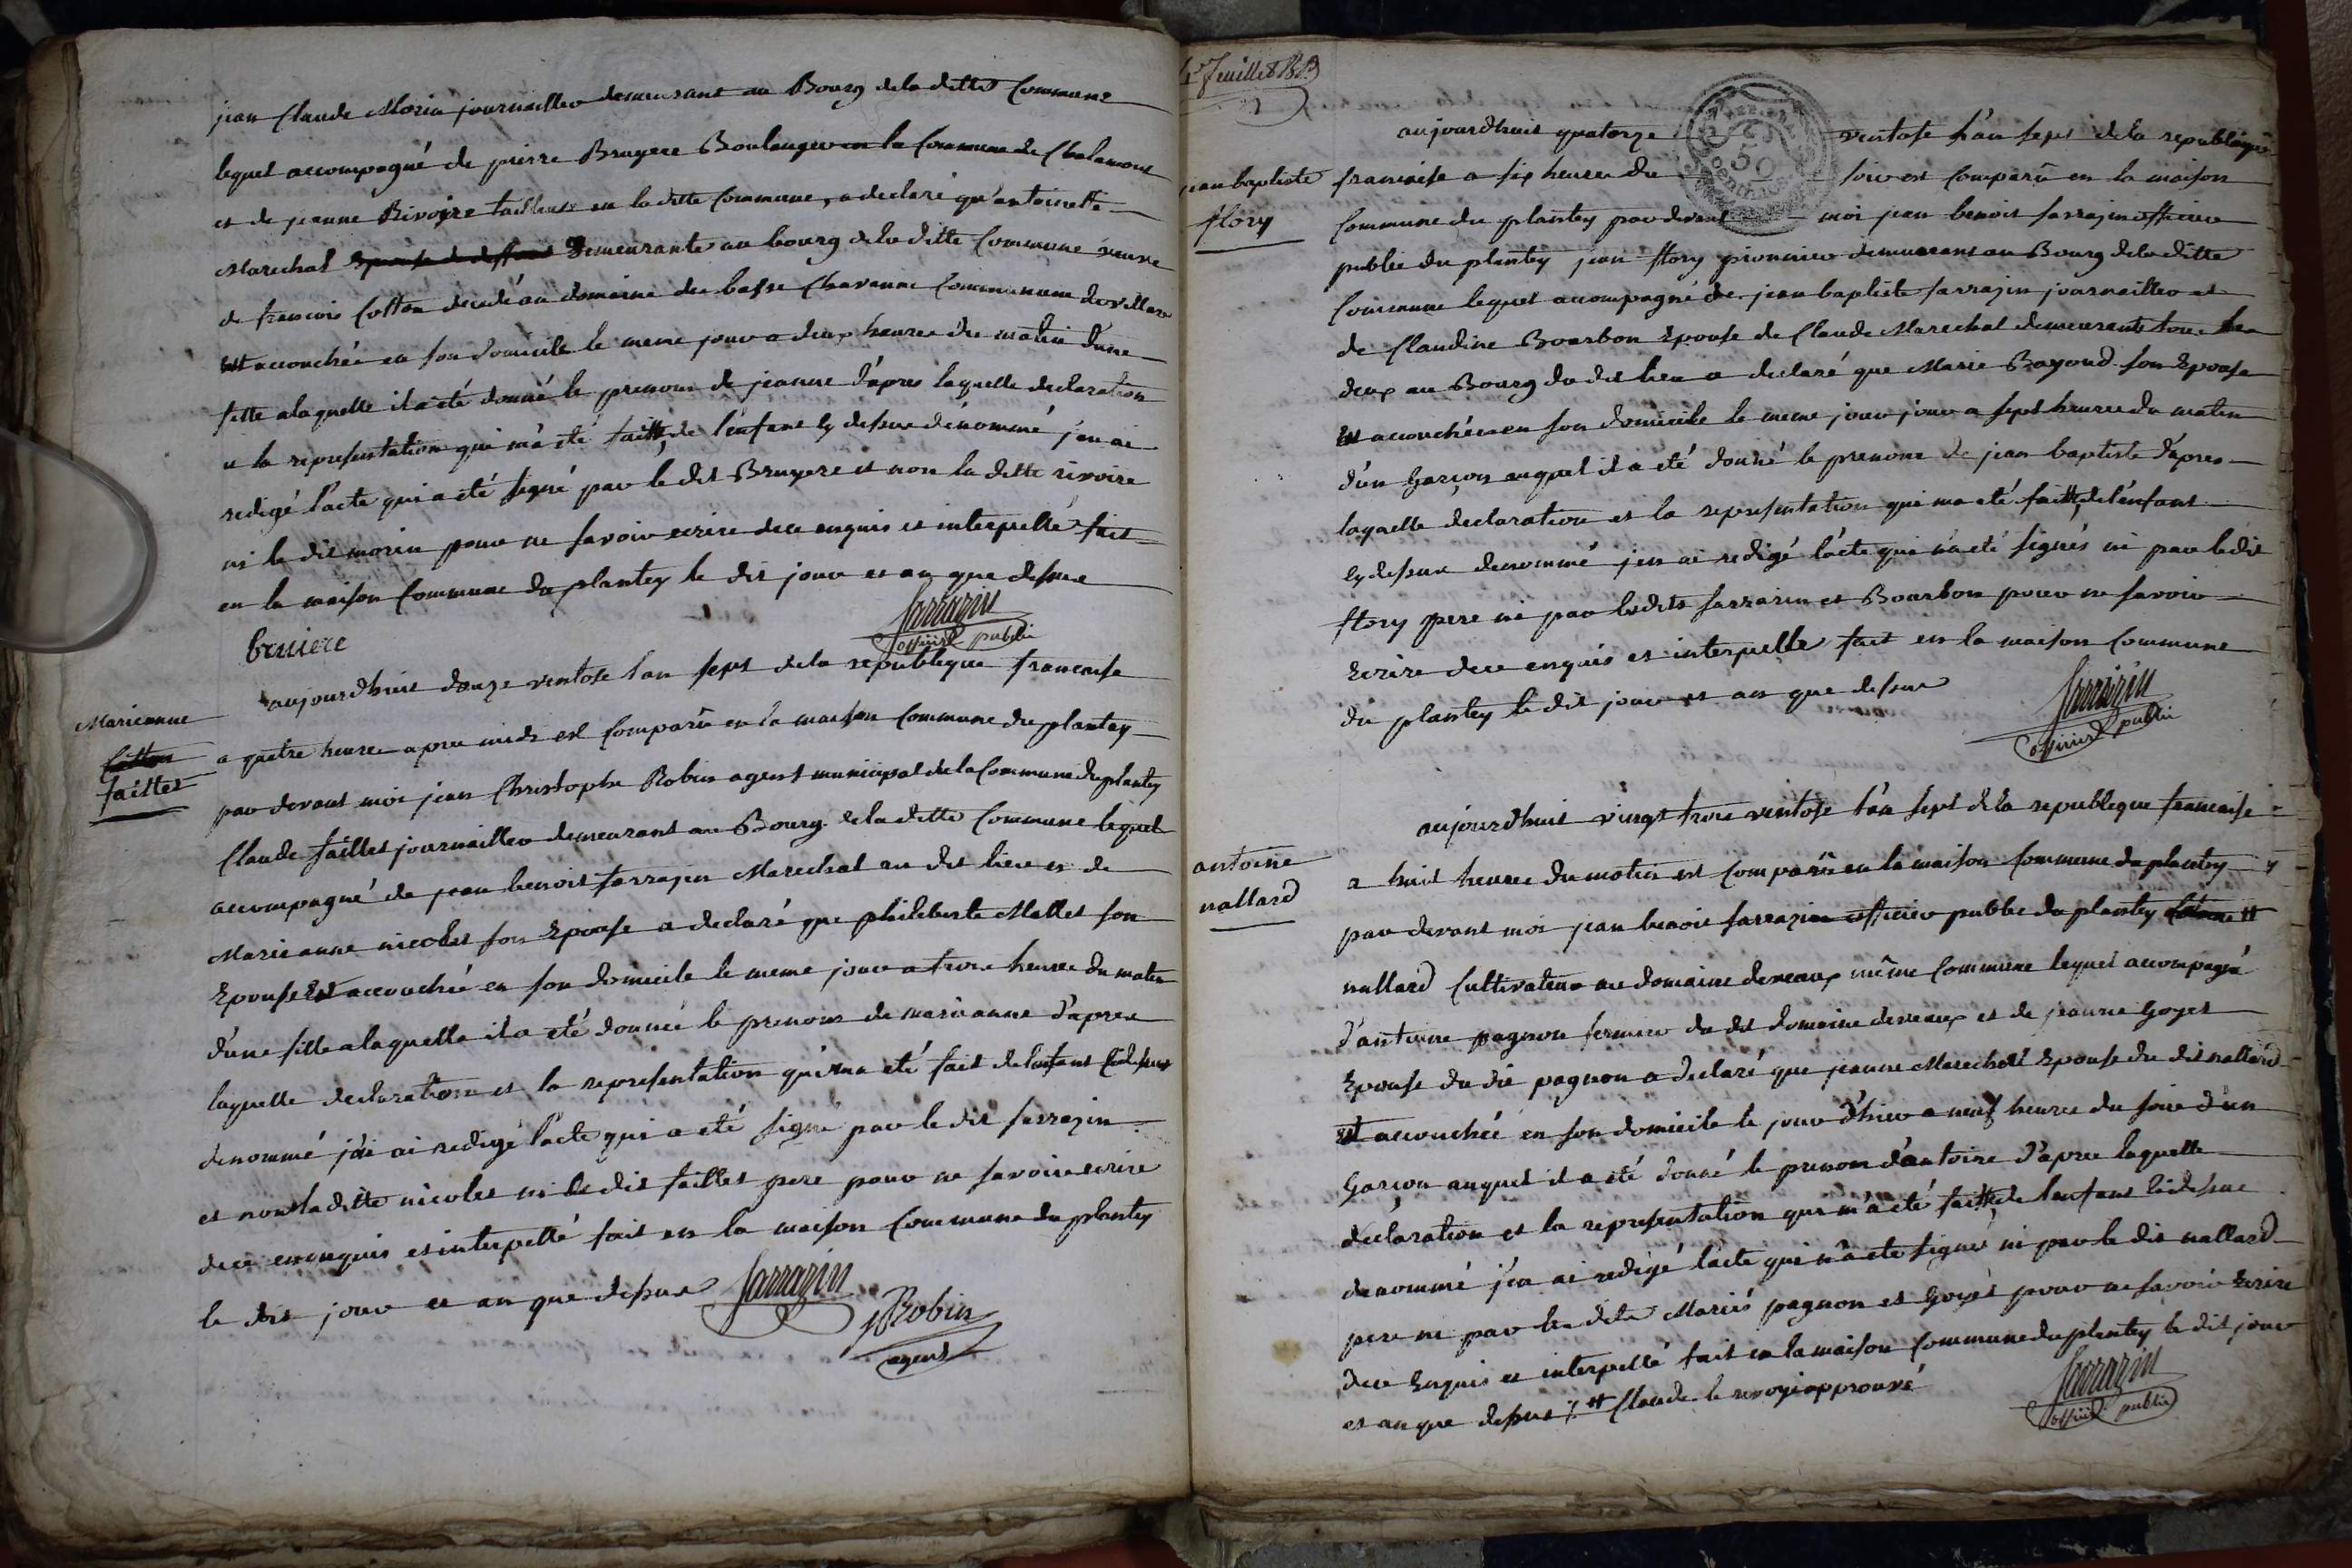 jean Claude Morin journaillier demeurant au Bourg dela ditte Commune
lequel accompagné de pierre Bruyere Boulanger en la Commune de Chalamont
et de jeanne Rivoire tailleuse en la ditte Commune, a declaré qu'antoinette
Marechal Epouse de deffunt Demeurante au bourg dela ditte Commune veuve
de francois Cotton decedé au domaine de basse Chavanne Commune de villars
est accouchée en son domicile le meme jour a deux heures du matin d'une
fille a laquelle il a été donné le prenom de jeanne d'apres laquelle declaration
et la representation qui m'a été faitte, de l'enfant cy dessus dénommé j'en ai
redigé l'acte qui a été signé par le dit Bruyere et non la ditte rivoire
ni le dit morin pour ne savoir ecrire de ce enquis et interpellé fait
en la maison Commune du plantey le dit jour et an que dessus
bruiere
Sarrazin
officier public
Marieanne
Cotton
faittet
aujourdhuit douze ventose l'an sept dela republique francaise
a quatre heures apres midi est Comparû en la maison Commune du plantey
par devant moi jean Christophe Robin agent municipal de la Commune du plantey
Claude faillet journaillier demeurant au Bourg dela ditte Commune lequel
accompagné de jean benoit sarrazin Marechal au dit lieu et de
Marieanne nicolet son Epouse a declaré que philiberte Mallet son
Epouse Est accouchée en son domicile le meme jour a trois heures du matin
d'une fille a laquelle il a été donnée le prenom de marieanne d'apres
laquelle declaration et la representation qui ma été fait de lenfant Cidessus
denommé j'en ai redigé l'acte qui a été signé par le dit sarrazin
et non la ditte nicolet ni le dit faillet pere pour ne savoir ecrire
de ce enquis et interpellé fait en la maison Commune du plantey
le dit jour et an que dessus
Sarrazin
Robin
agent
2e feuille 1819
50
Centimes
jean baptiste
flory
aujourdhuit quatorze ventose l'an sept dela republique
francaise a six heures du soir est Comparû en la maison
Commune du plantey par devant moi jean benoit sarrazin officier
public du plantey jean flory pionnier demeurant au Bourg dela ditte
Commune lequel accompagné de jean baptiste sarrazin journaillier et
de Claudine Bourbon Epouse de Claude Marechal demeurante tous les
deux au Bourg du dit lieu a declaré que Marie Bayoud son Epouse
Est accouchée en son domicile le meme jour jour a sept heures du matin
d'un Garçon auquel il a été donné le prenom de jean baptiste d'apres
laquelle declaration et la representation qui ma été faitte, de l'enfant
cy dessus denommé j'en ai redigé l'acte qui n'a été signés ni par le dit
flory pere ni par les dits sarrazin et Bourbon pour ne savoir
Ecrire de ce enquis et interpellé fait en la maison Commune
du plantey le dit jour et an que dessus
Sarrazin
officier public
antoine
nallard
aujourdhuit vingt trois ventose l'an sept dela republique francaise
a huit heures du matin est Comparû en la maison Commune du plantey
par devant moi jean benoit sarrazin officier public du plantey
nallard Cultivateur au domaine deveaux même Commune lequel accompagné
d'antoine pagnon fermier du dit domaine deveaux et de jeanne Goyet
Epouse du dit pagnon a declaré que jeanne Marechal Epouse du dit nallard
est accouchée en son domicile le jour d'hier a neuf heures du soir d'un
Garçon auquel il a été donné le prenom d'antoine d'apres laquelle
declaration et la representation qui m'a été faitte, de lenfant cidessus
denommé j'en ai redigé l'acte qui n'a été signés ni par le dit nallard
pere ni par les dits Mariés pagnon et Goyet pour ne savoir Ecrire
de ce Enquis et interpellé fait en la maison Commune du plantey le dit jour
et an que dessus # Claude le renvoi approuvé
Sarrazin
officier public